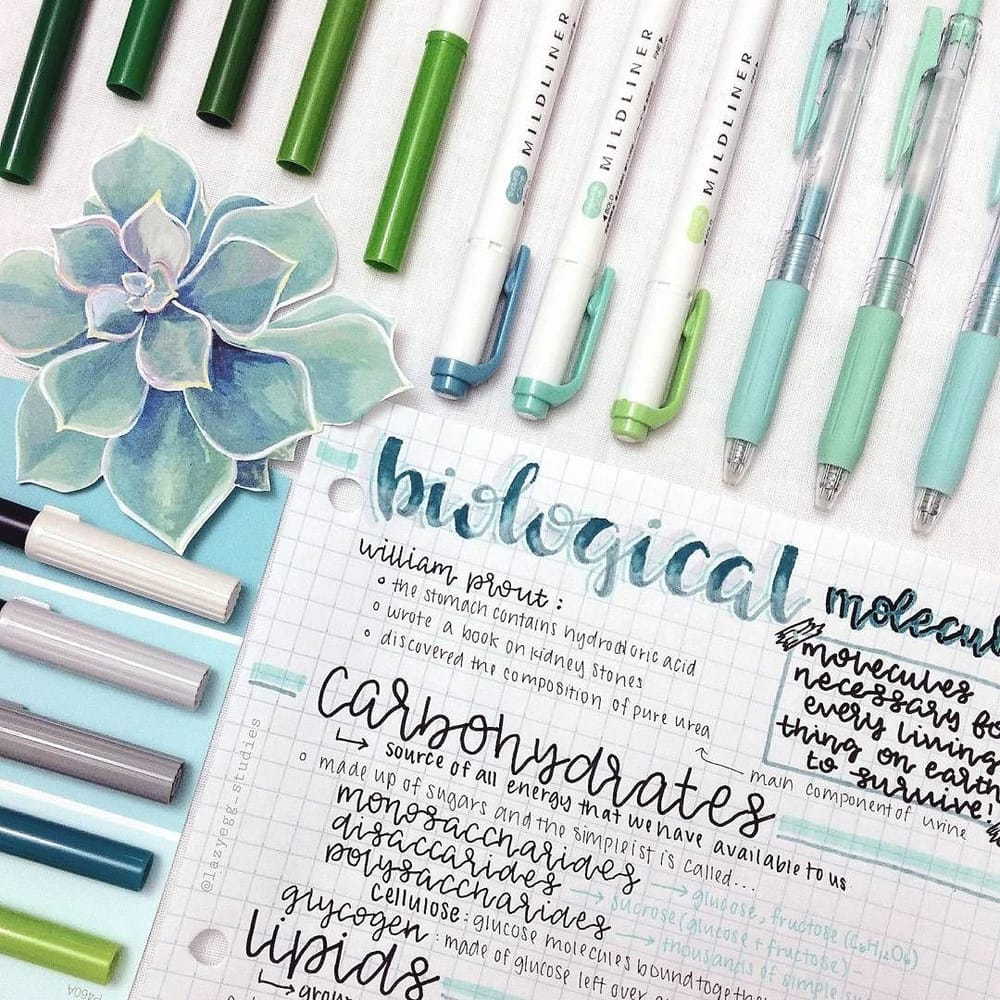 MILDLINER
MILDLINER
MILDLINER
BOLD
biological
william prout:
• the stomach contains hydrochloric acid
o wrote a book on kidney stones
• discovered the composition of pure urea
main component of urine
molecules
necessary
every living
thing on earth
to survive!
carbohydrates
↳ source of all energy that we have available to us
o made up of sugars and the simpleist is called...
monosaccharides → glucose, fructose (C6H12O6)
disaccarides → sucrose (glucose + fructose)
polysaccharides → thousands of simple
cellulose: glucose molecules bound
glycogen: made of glucose left over
lipids
@lazyegg_studies